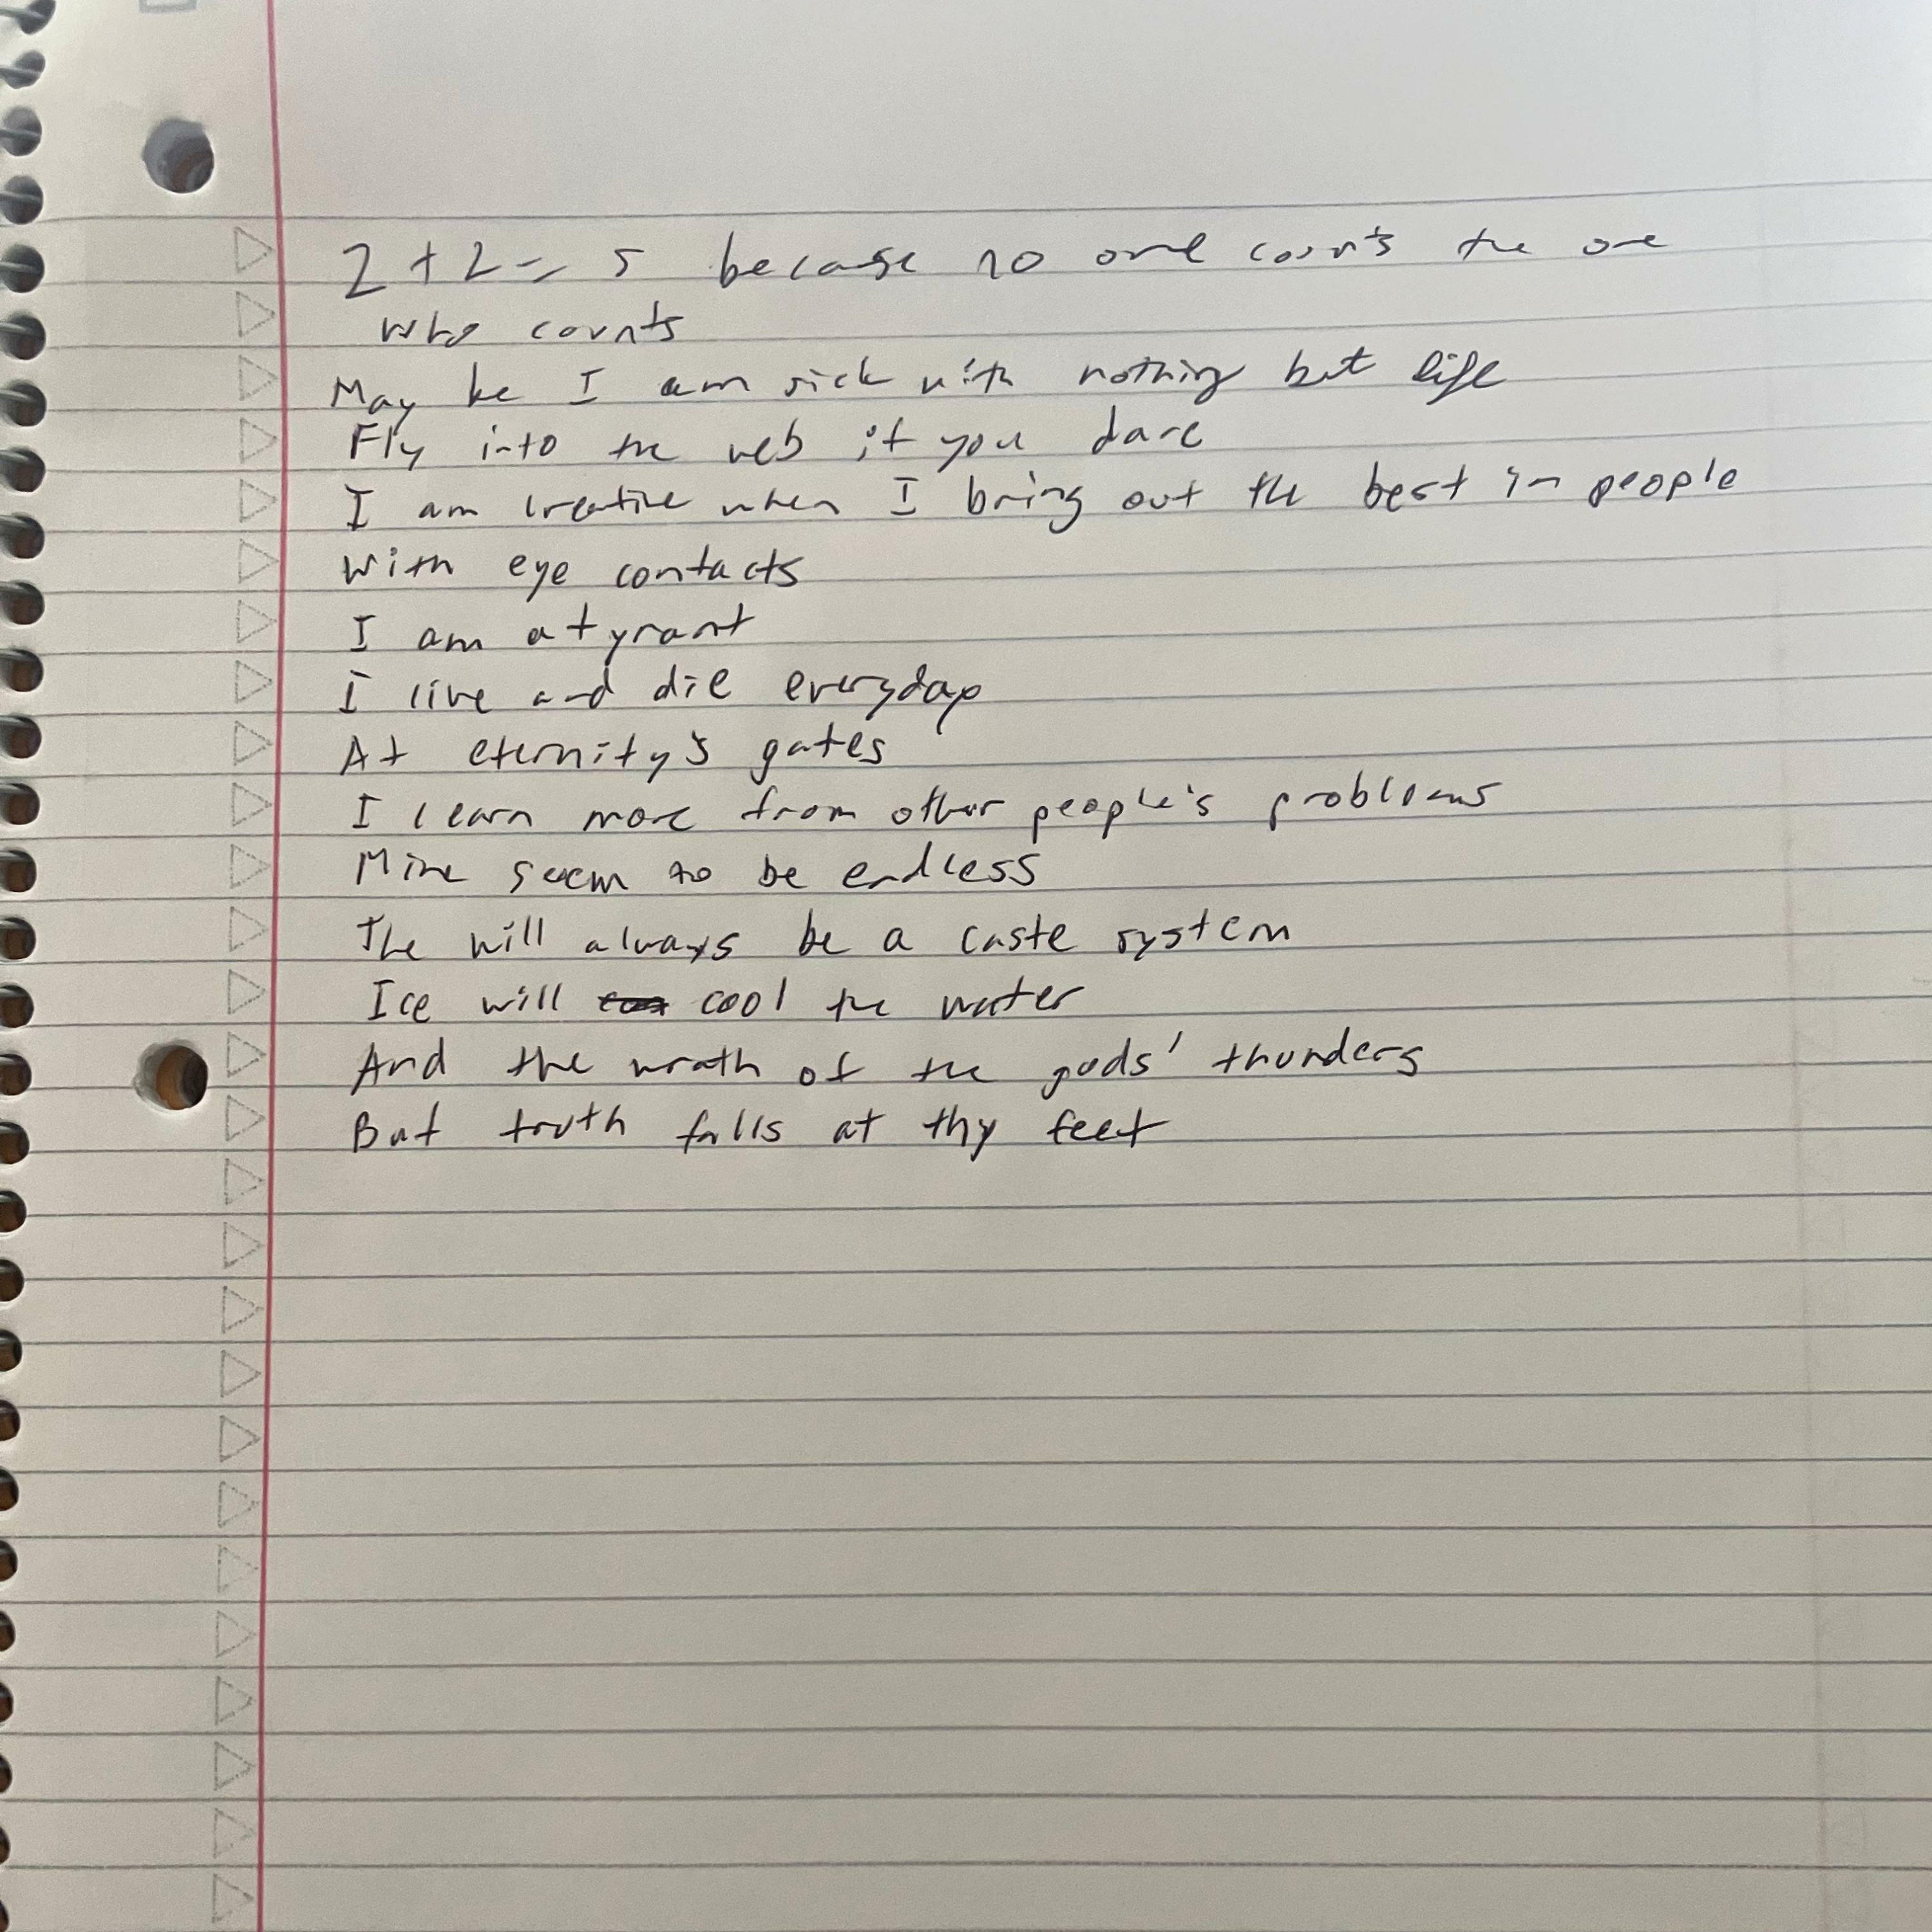 2 + 2 = 5 because no one counts the one
who counts
May be I am sick with nothing but life
Fly into the web if you dare
I am creative when I bring out the best in people
With eye contacts
I am a tyrant
I live and die everyday
At eternity's gates
I learn more from other people's problems
Mine seem to be endless
The will always be a caste system
Ice will cool the water
And the wrath of the gods' thunders
But truth falls at thy feet